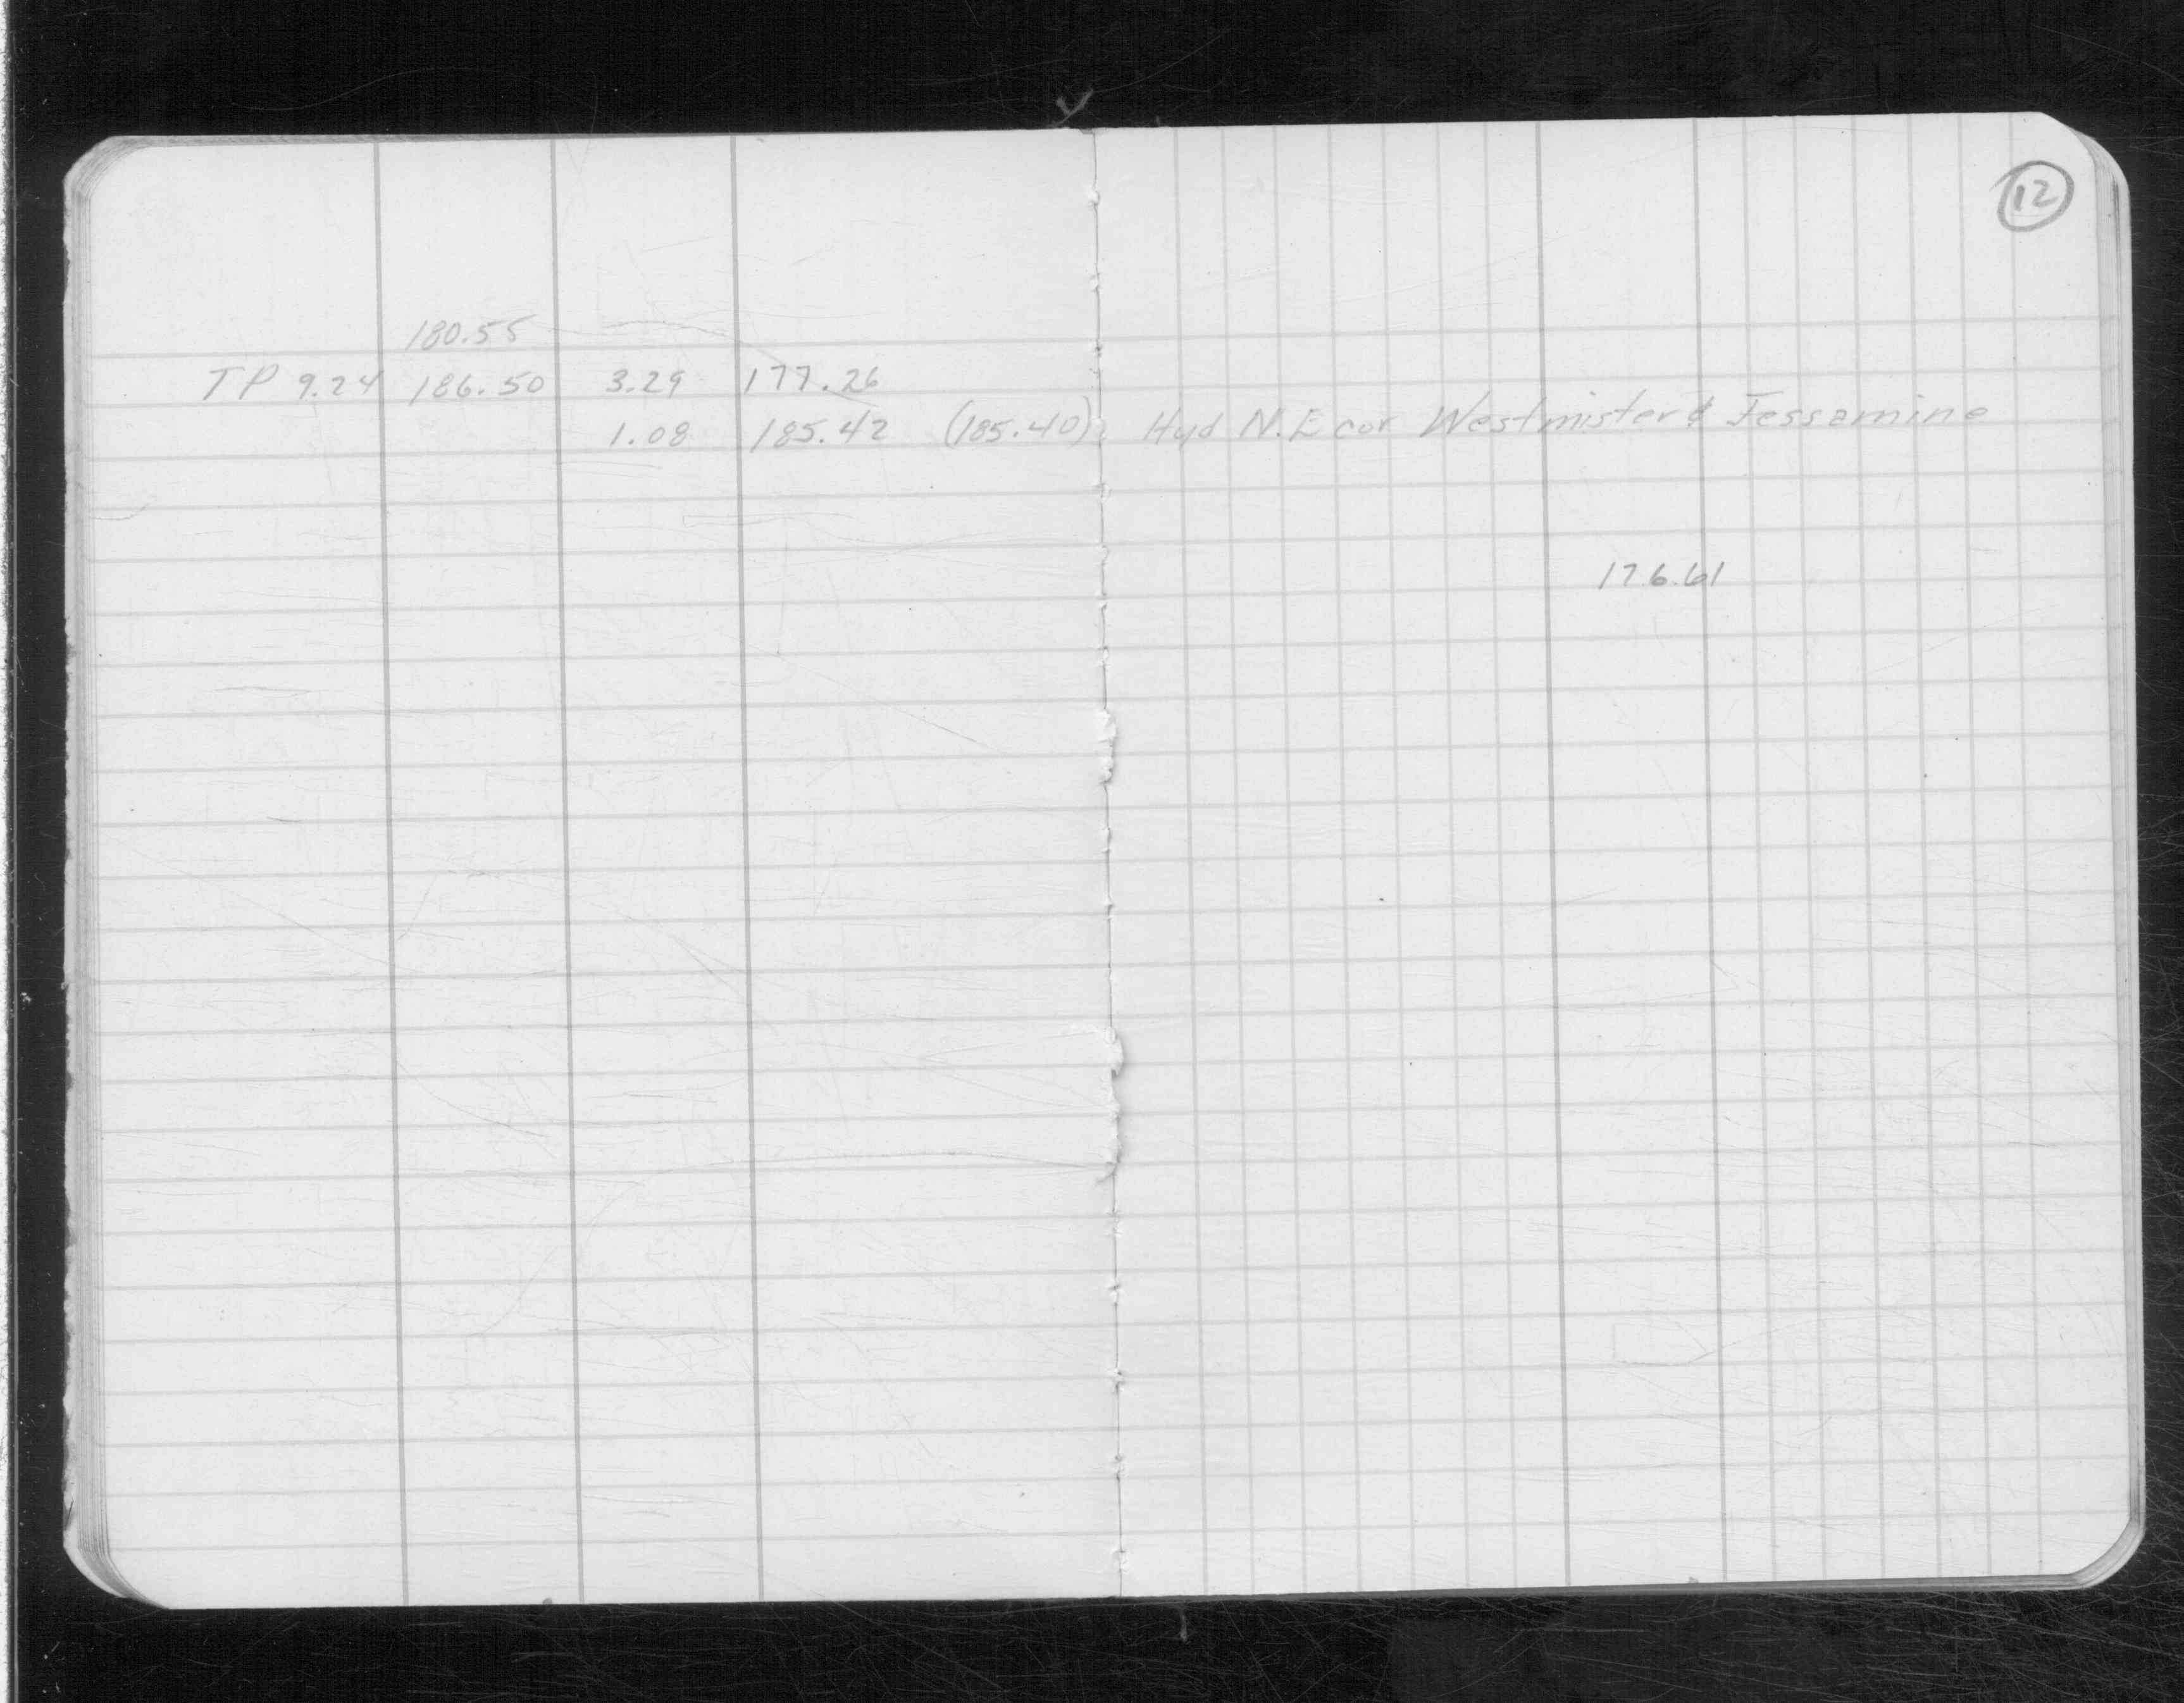 12
180.55
TP 9.24 186.50 3.29 177.26
1.08 185.42 (185.40) Hyd N.E cor Westmister & Jessamine
176.61